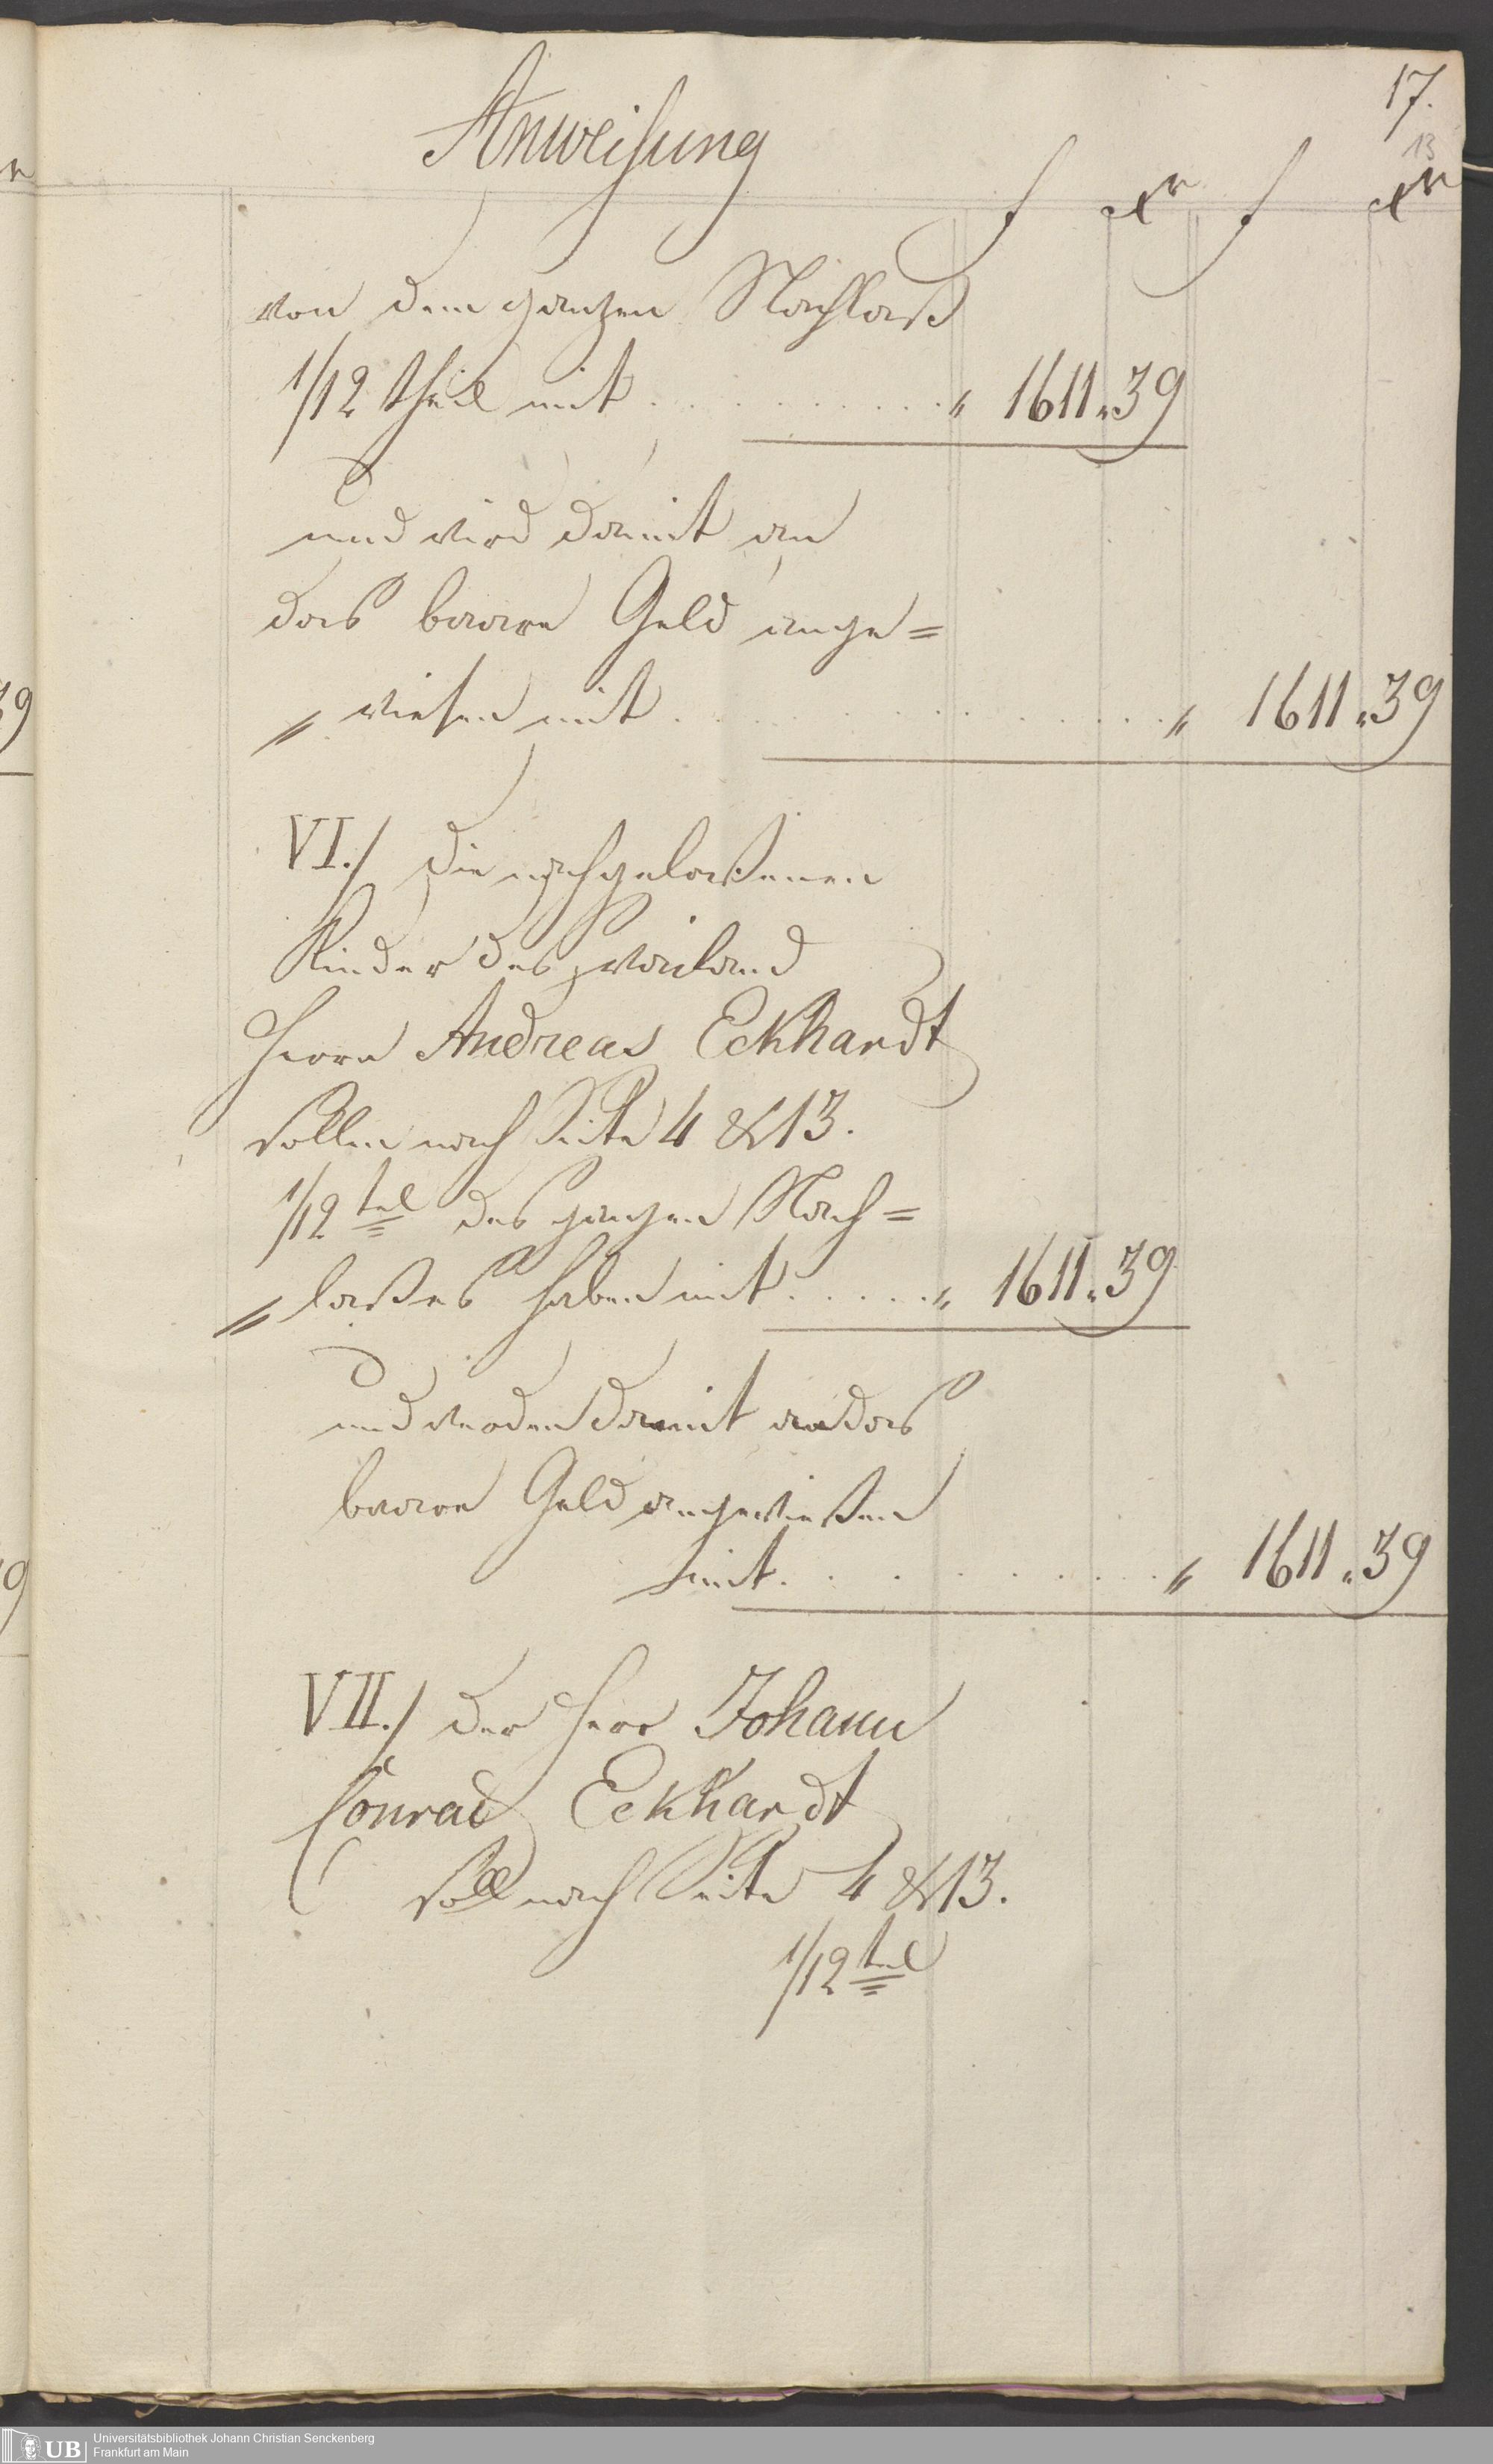 17.
13
Anweisung
f xr f xr
von dem ganzen Nachlaß
1/12 theil mit . . . . . . . . . . " 1611 " 39
und wird damit an
das baare Geld ange=
" wiesen mit . . . . . . . . . . " 1611 " 39
VI./ die nachgelaßenen
Kinder des weiland
Herrn Andreas Eckhardt
sollen nach Seite 4 & 13.
1/12 tel des ganzen Nach=
" laßes haben mit . . . . . " 1611 " 39
und werden damit an das
baare Geld angewießen
mit . . . . . . . . " 1611 " 39
VII./ der Herr Johann
Conrad Eckhardt
soll nach Seite 4 & 13.
1/12 tel
39
UB
Universitätsbibliothek Johann Christian Senckenberg
Frankfurt am Main